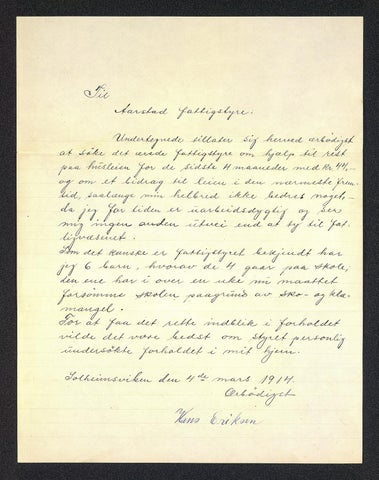 Til
Aarstad fattigstyre.
Undertegnede tillater sig herved ærbødigst
at søke det ærede fattigstyre om hjælp til rest
paa husleien for de sidste 4 maaneder med Kr. 44,-
og om et bidrag til leien i den nærmeste frem-
tid, saalænge min helbred ikke bedres noget,-
da jeg for tiden er uarbeidsdygtig og ser
mig ingen anden utvei end at ty til fat-
tigvæsenet.
Som det kanske er fattigstyret bekjendt har
jeg 6 barn, hvorav de 4 gaar paa skole,
den ene har i over en uke nu maattet
forsömme skolen paagrund av sko- og klæ-
mangel.
For at faa det rette indblik i forholdet
vilde det være bedst om styret personlig
undersökte forholdet i mit hjem.
Solheimsviken den 4de mars 1914.
Ærbødigst
Hans Eriksen